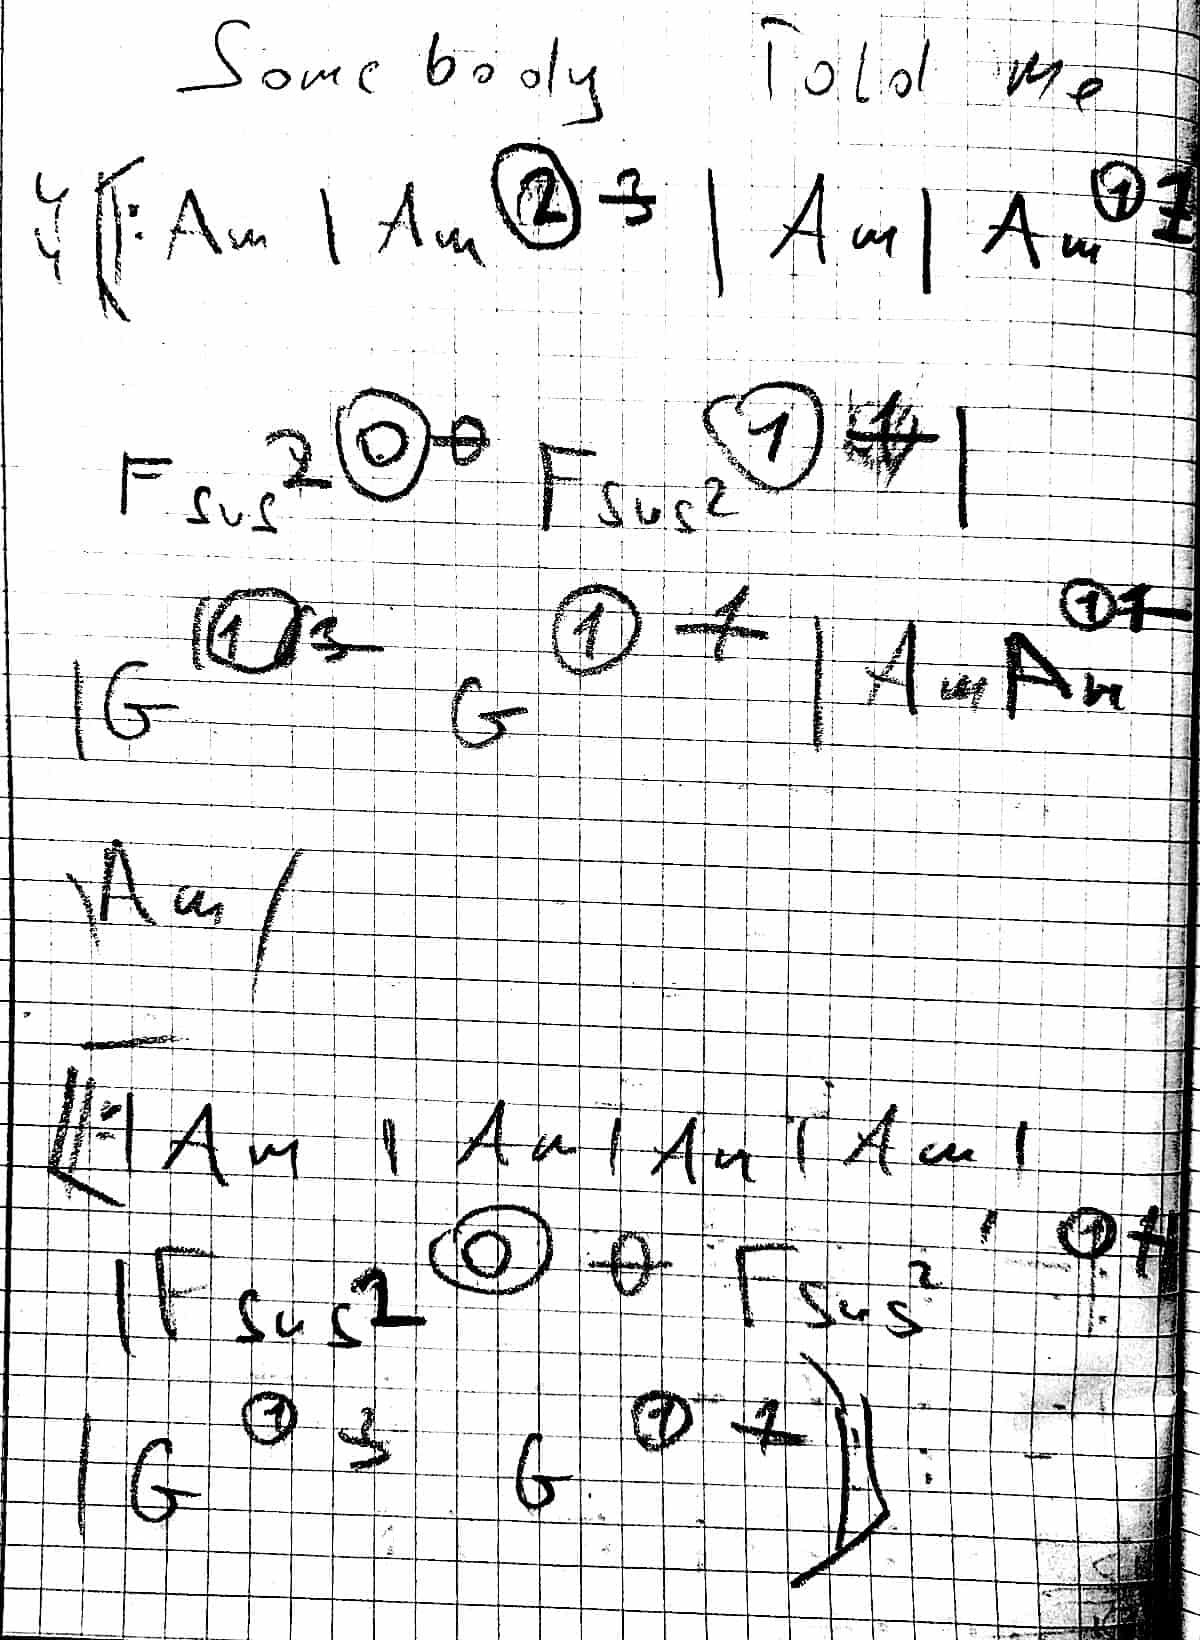 Somebody Told Me
4/4 ‖: Am | Am ② 3 | Am | Am ① 1
Fsus2 ⓪ 0 Fsus2 ① 1 |
| G ① 3 G ① 1 | Am Am ① 1
| Am |
‖: | Am | Am | Am | Am |
| Fsus2 ⓪ 0 Fsus2 ① 1
| G ① 3 G ① 1 :‖